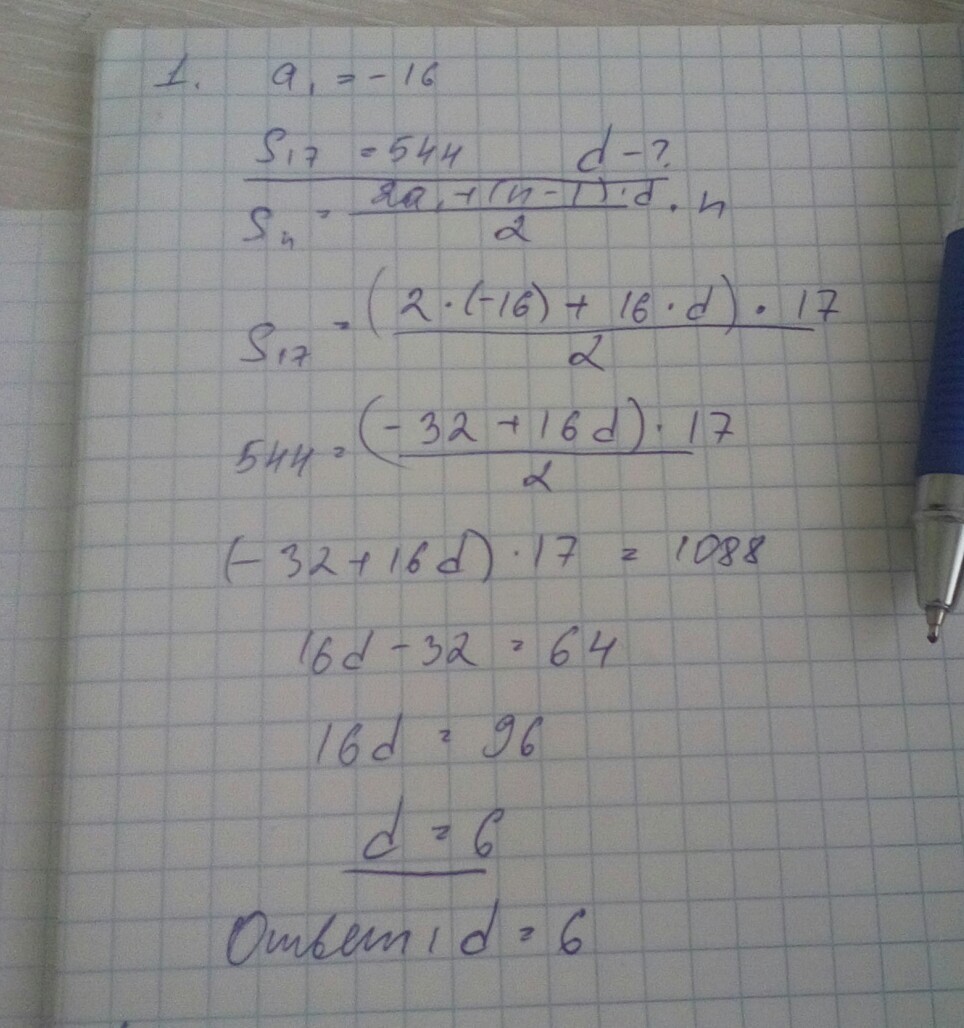 1. a₁ = -16
S₁₇ = 544 d - ?
Sₙ = (2a₁ + (n - 1)·d)/2 · n
S₁₇ = ((2·(-16) + 16·d) · 17)/2
544 = ((-32 + 16d) · 17)/2
(-32 + 16d) · 17 = 1088
16d - 32 = 64
16d = 96
d = 6
Ответ: d = 6